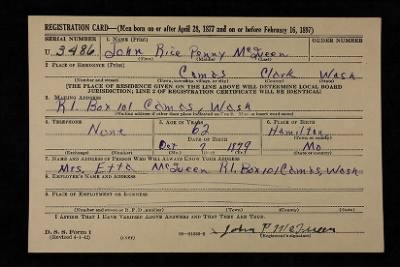 REGISTRATION CARD—(Men born on or after April 28, 1877 and on or before February 16, 1897)
SERIAL NUMBER 1. NAME (Print) ORDER NUMBER
U 3486 John Rice Penny McQueen
(First) (Middle) (Last)
2. PLACE OF RESIDENCE (Print)
Camas Clark Wash
(Number and street) (Town, township, village, or city) (County) (State)
[THE PLACE OF RESIDENCE GIVEN ON THE LINE ABOVE WILL DETERMINE LOCAL BOARD
JURISDICTION; LINE 2 OF REGISTRATION CERTIFICATE WILL BE IDENTICAL]
3. MAILING ADDRESS
R1. Box 101 Camas, Wash
4. TELEPHONE 5. AGE IN YEARS 6. PLACE OF BIRTH
None 62 Hamilton
DATE OF BIRTH (Town or county)
Oct 7 1879 Mo
(Exchange) (Number) (Mo.) (Day) (Yr.) (State or country)
7. NAME AND ADDRESS OF PERSON WHO WILL ALWAYS KNOW YOUR ADDRESS
Mrs. Etta McQueen R1. Box 101 Camas, Wash
8. EMPLOYER'S NAME AND ADDRESS
9. PLACE OF EMPLOYMENT OR BUSINESS
(Number and street or R. F. D. number) (Town) (County) (State)
I AFFIRM THAT I HAVE VERIFIED ABOVE ANSWERS AND THAT THEY ARE TRUE.
D. S. S. Form 1
(Revised 4-1-42) (over) John P. McQueen
(Registrant's signature)